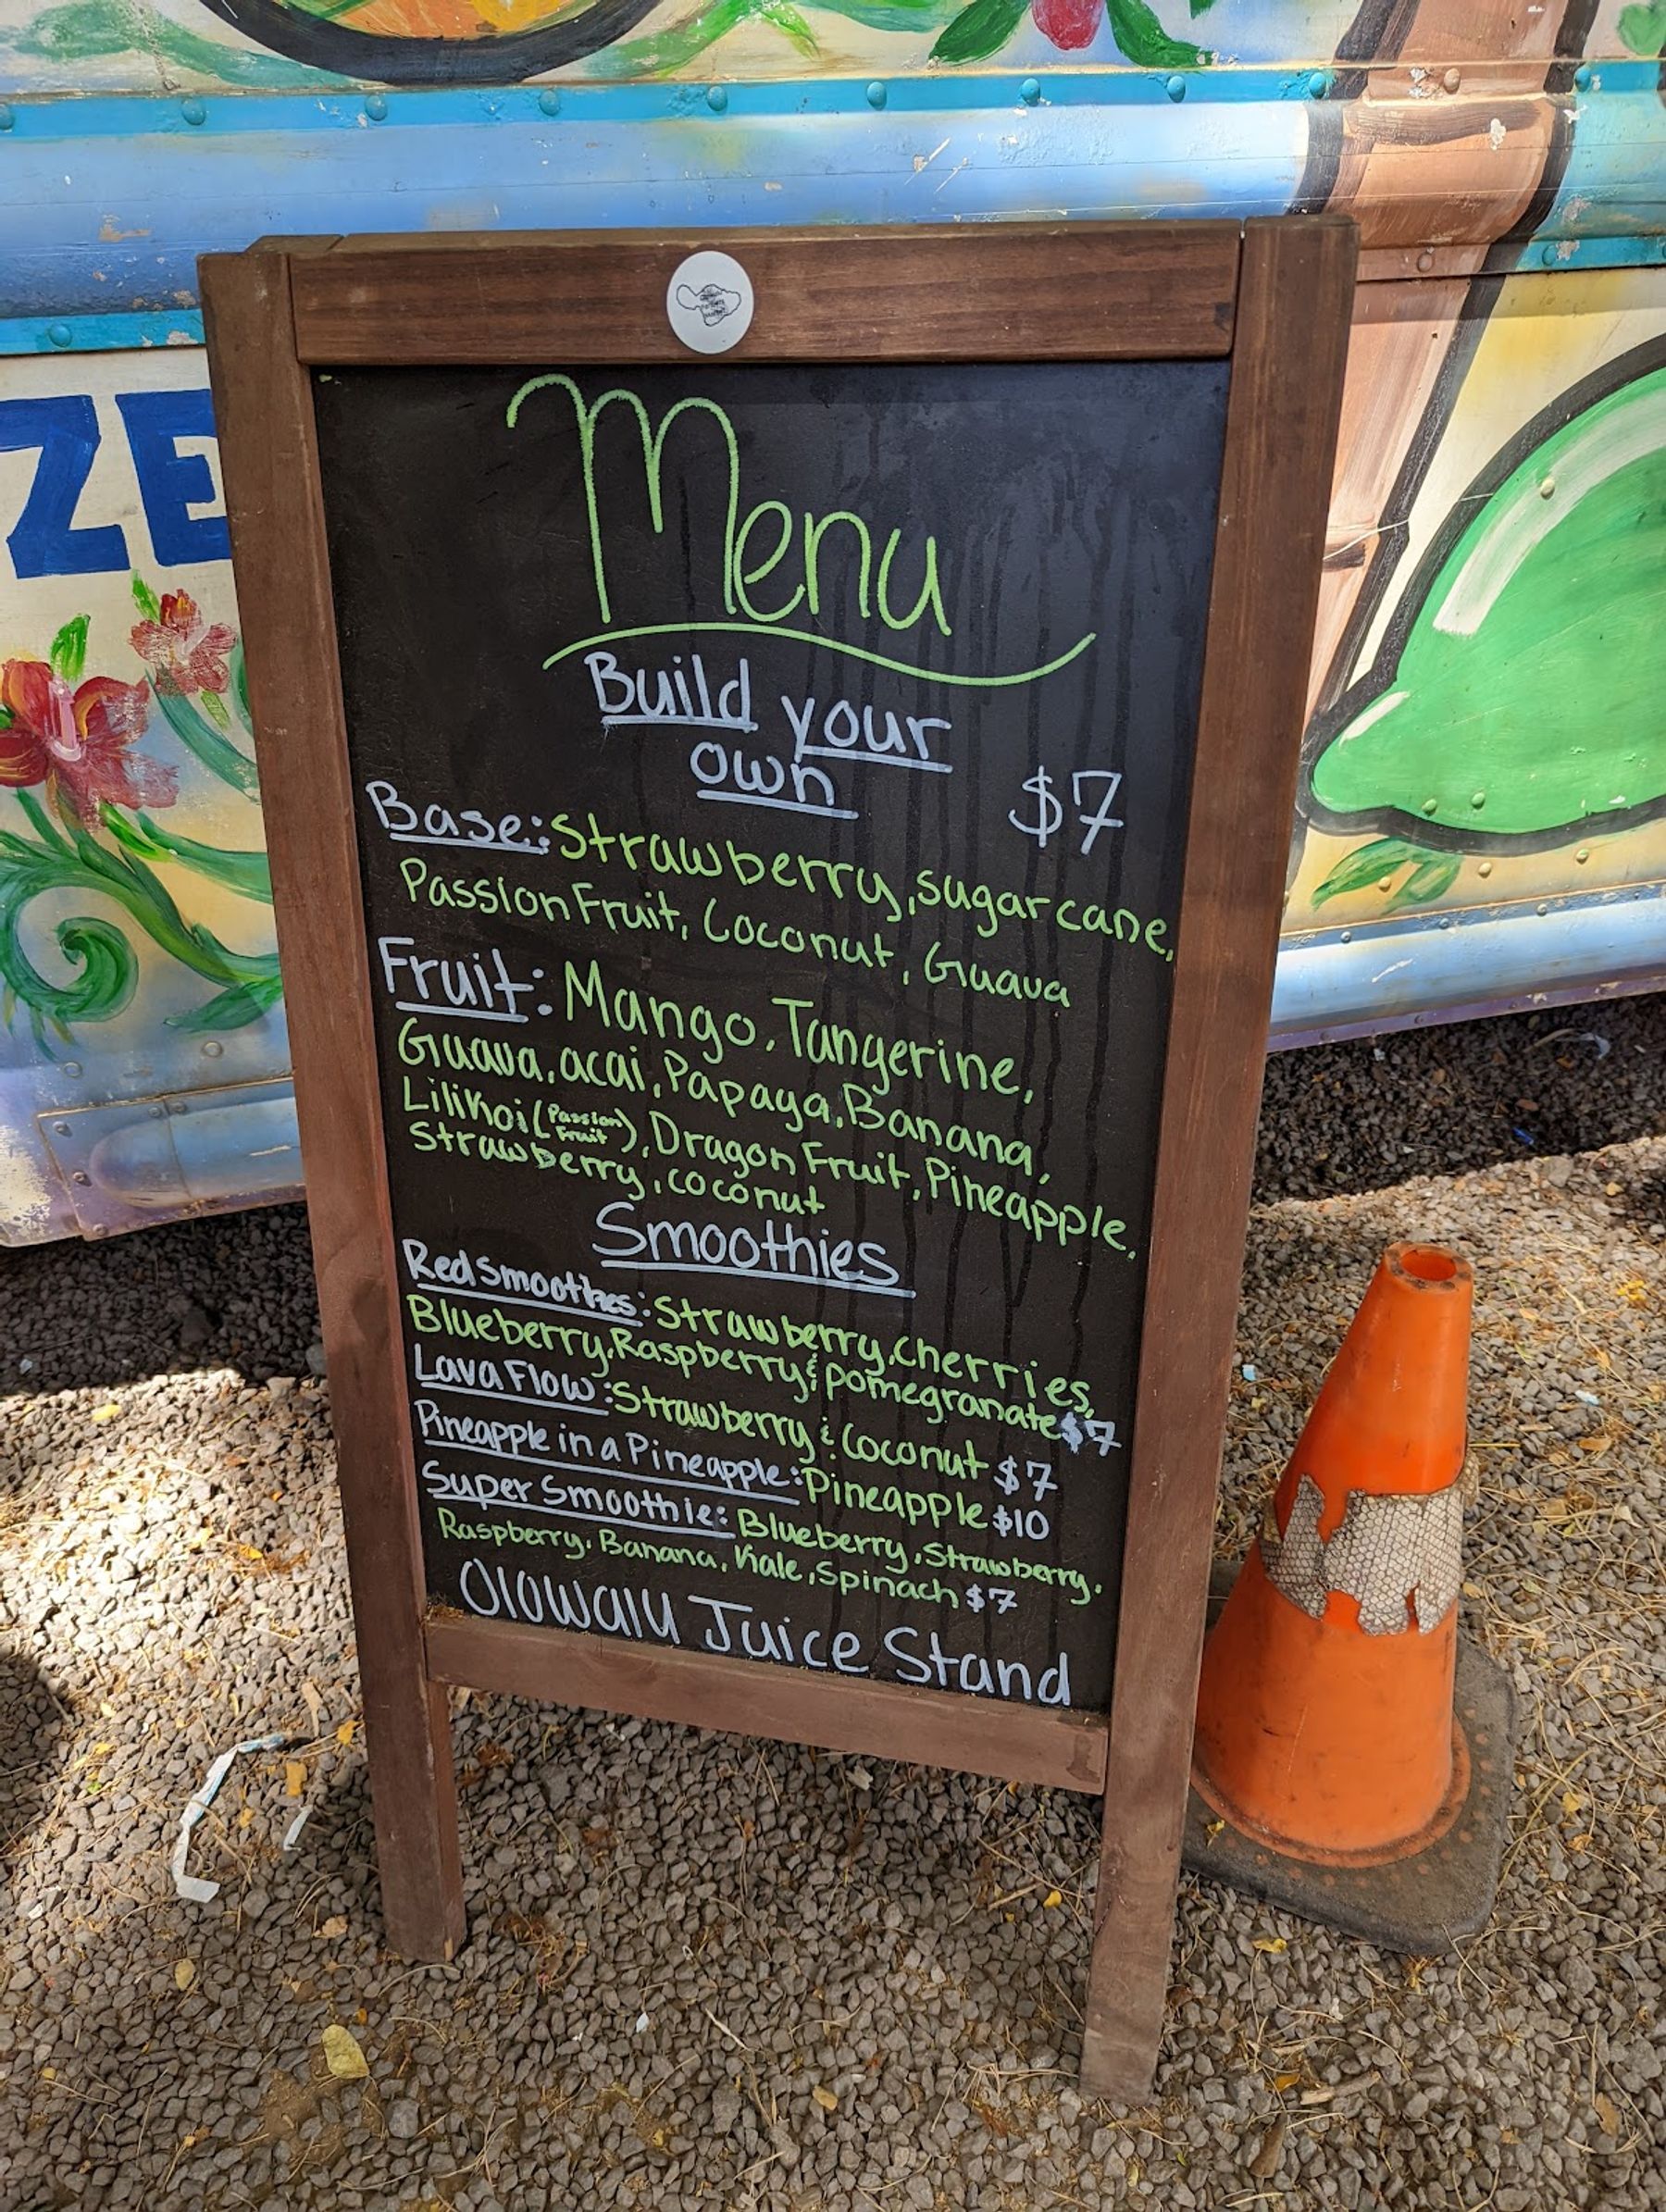 ZE
Menu
Build your
own
$7
Base: Strawberry, sugar cane,
Passion Fruit, Coconut, Guava
Fruit: Mango, Tangerine,
Guava, acai, Papaya, Banana,
Lilikoi (Passion Fruit), Dragon Fruit, Pineapple,
Strawberry, coconut
Smoothies
Red Smoothies: Strawberry, Cherries,
Blueberry, Raspberry & pomegranate $7
Lava Flow: Strawberry & Coconut $7
Pineapple in a Pineapple: Pineapple $10
Super Smoothie: Blueberry, Strawberry,
Raspberry, Banana, Kale, Spinach $7
Olowalu Juice Stand